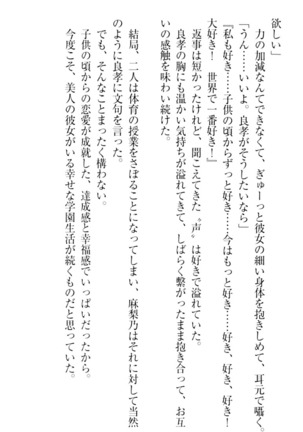 欲しい」
　力の加減なんてできなくて、ぎゅーっと彼女の細い身体を抱きしめて、耳元で囁く。
「うん……いいよ。良孝がそうしたいなら」
『私も好き……子供の頃からずっと好き……今はもっと好き……好き、好き、好き！
大好き！　世界で一番好き！』
　返事は短かったけれど、聞こえてきた〝声〟は好きで溢れていた。
　良孝の胸にも温かい気持ちが溢れてきて、しばらく繋がったまま抱き合って、お互
いの感触を味わい続けた。
　結局、二人は体育の授業をさぼることになってしまい、麻梨乃はそれに対して当然
のように良孝に文句を言った。
　でも、そんなことまったく構わない。
　子供の頃からの恋愛が成就した、達成感と幸福感でいっぱいだったから。
　今度こそ、美人の彼女がいる幸せな学園生活が続くものだと思っていた。